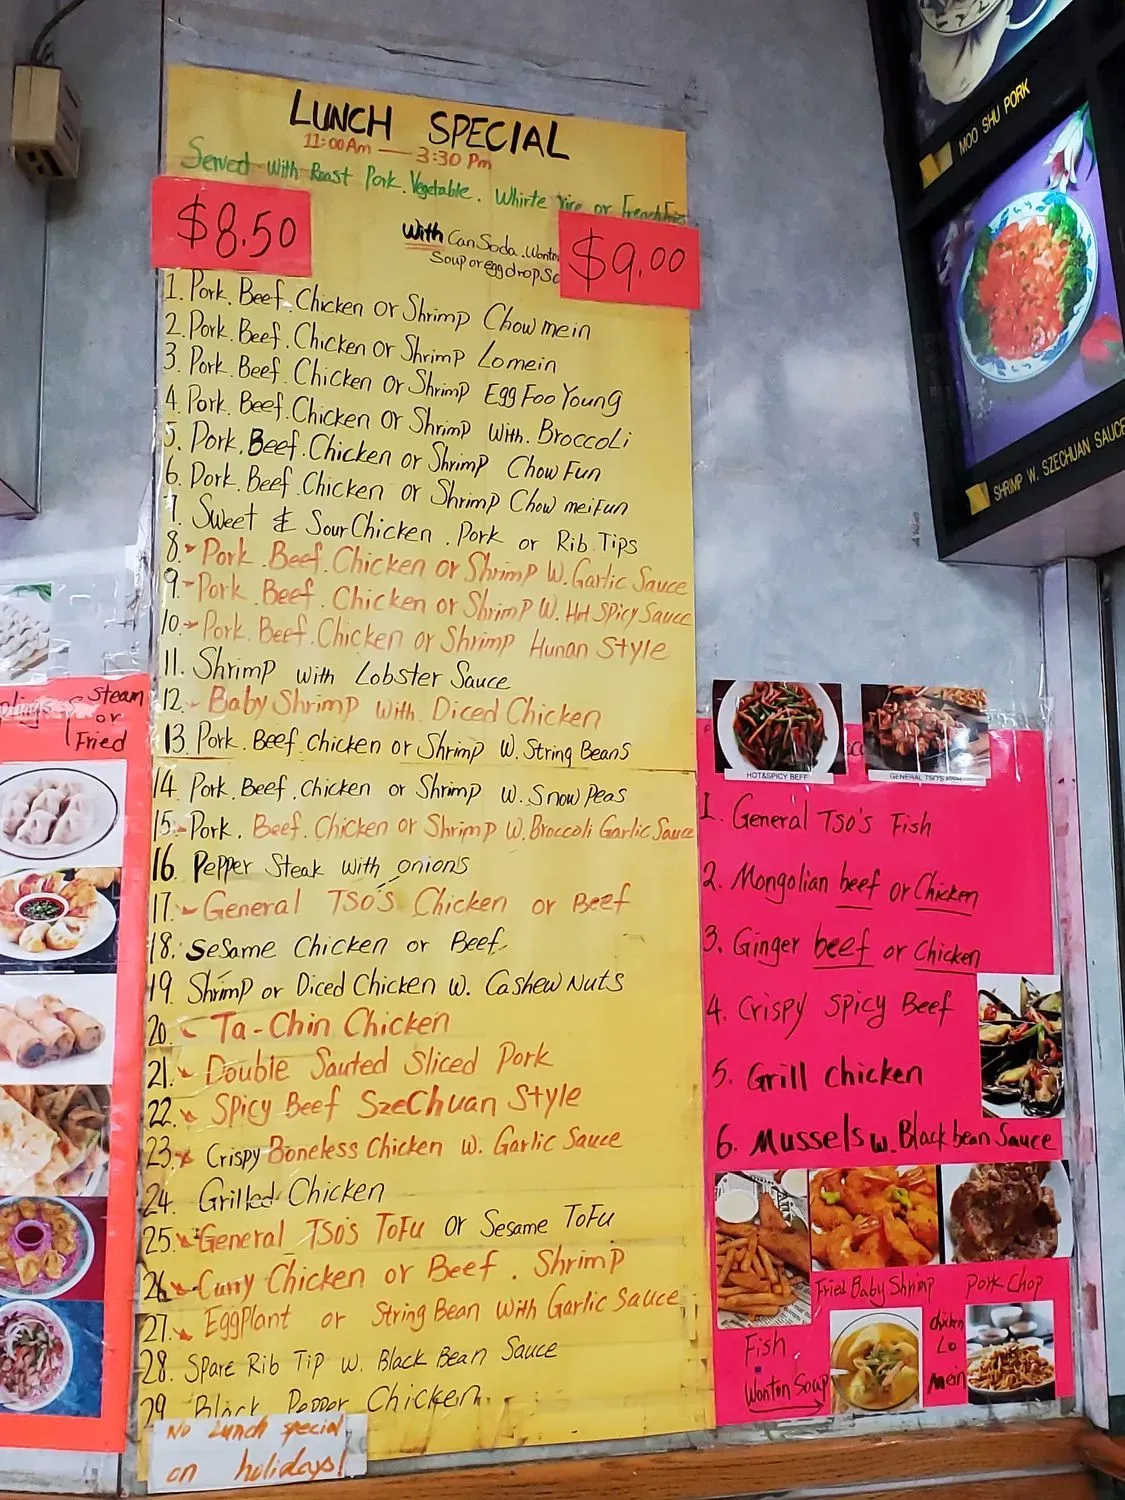 LUNCH SPECIAL
11:00Am — 3:30 Pm
Served With Roast Pork. Vegetable. Whirte rire or French Fries
$8.50
With Can Soda. Wonton
Soup or egg drop So
$9.00
1. Pork. Beef. Chicken or Shrimp Chow mein
2. Pork. Beef. Chicken or Shrimp Lomein
3. Pork. Beef. Chicken or Shrimp Egg Foo Young
4. Pork. Beef. Chicken or Shrimp With. Broccoli
5. Pork. Beef. Chicken or Shrimp Chow Fun
6. Pork. Beef. Chicken or Shrimp Chow meifun
7. Sweet & Sour Chicken. Pork or Rib Tips
8. Pork. Beef. Chicken or Shrimp W. Garlic Sauce
9. Pork. Beef. Chicken or Shrimp W. Hot Spicy Sauce
10. Pork. Beef. Chicken or Shrimp Hunan Style
11. Shrimp with Lobster Sauce
12. Baby Shrimp with. Diced Chicken
13. Pork. Beef. Chicken or Shrimp W. String Beans
14. Pork. Beef. Chicken or Shrimp w. Snow Peas
15. Pork. Beef. Chicken or Shrimp W. Broccoli Garlic Sauce
16. Pepper Steak with onions
17. General TSO'S Chicken or Beef
18. Sesame Chicken or Beef
19. Shrimp or Diced Chicken w. Cashew Nuts
20. Ta-Chin Chicken
21. Double Sauted Sliced Pork
22. Spicy Beef SzeChuan Style
23. Crispy Boneless Chicken w. Garlic Sauce
24. Grilled Chicken
25. General TSO'S ToFu or Sesame ToFu
26. Curry Chicken or Beef. Shrimp
27. EggPlant or String Bean with Garlic Sauce
28. Spare Rib Tip w. Black Bean Sauce
29. Black Pepper Chicken
No Lunch special
on holidays!
Steam
or
Fried
MOO SHU PORK
SHRIMP W. SZECHUAN SAUCE
HOT&SPICY BEEF
GENERAL TSO'S FISH
1. General TSO'S Fish
2. Mongolian beef or Chicken
3. Ginger beef or Chicken
4. Crispy Spicy Beef
5. Grill chicken
6. Mussels w. Black bean Sauce
Fried Baby Shrimp
Pork Chop
Fish
Wonton Soup
chicken
Lo
mein